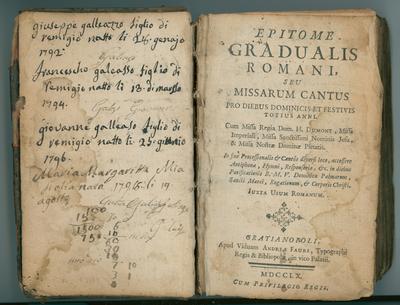 giuseppe galleazzo figlio di
remigio natto li 24. genajo
1792
francescho galeasso figlio di
remigio natto li 18. di marzo
1794.
giovanne galleaso figlio di
remigio natto li 25. giunio
1796.
Maria Margarita Mia
figlia nata 1798. li 19
agosto
100
EPITOME
GRADUALIS
ROMANI,
SEU
MISSARUM CANTUS
PRO DIEBUS DOMINICIS ET FESTIVIS
TOTIUS ANNI.
Cum Missa Regia Dom. H. DUMONT, Missa
Imperiali, Missa Sanctissimi Nominis Jesu,
& Missa Nostræ Dominæ Pietatis.
In suis Processionalis & Cantûs diversi loco, accessere
Antiphonæ, Hymni, Responsoria, &c. in diebus
Purificationis B. M. V. Dominicæ Palmarum,
Sancti Marci, Rogationum, & Corporis Christi.
JUXTA USUM ROMANUM.
GRATIANOPOLI,
Apud Viduam ANDREÆ FAURE, Typographi
Regis & Bibliopolæ, in vico Palatii.
MDCCLX.
CUM PRIVILEGIO REGIS.